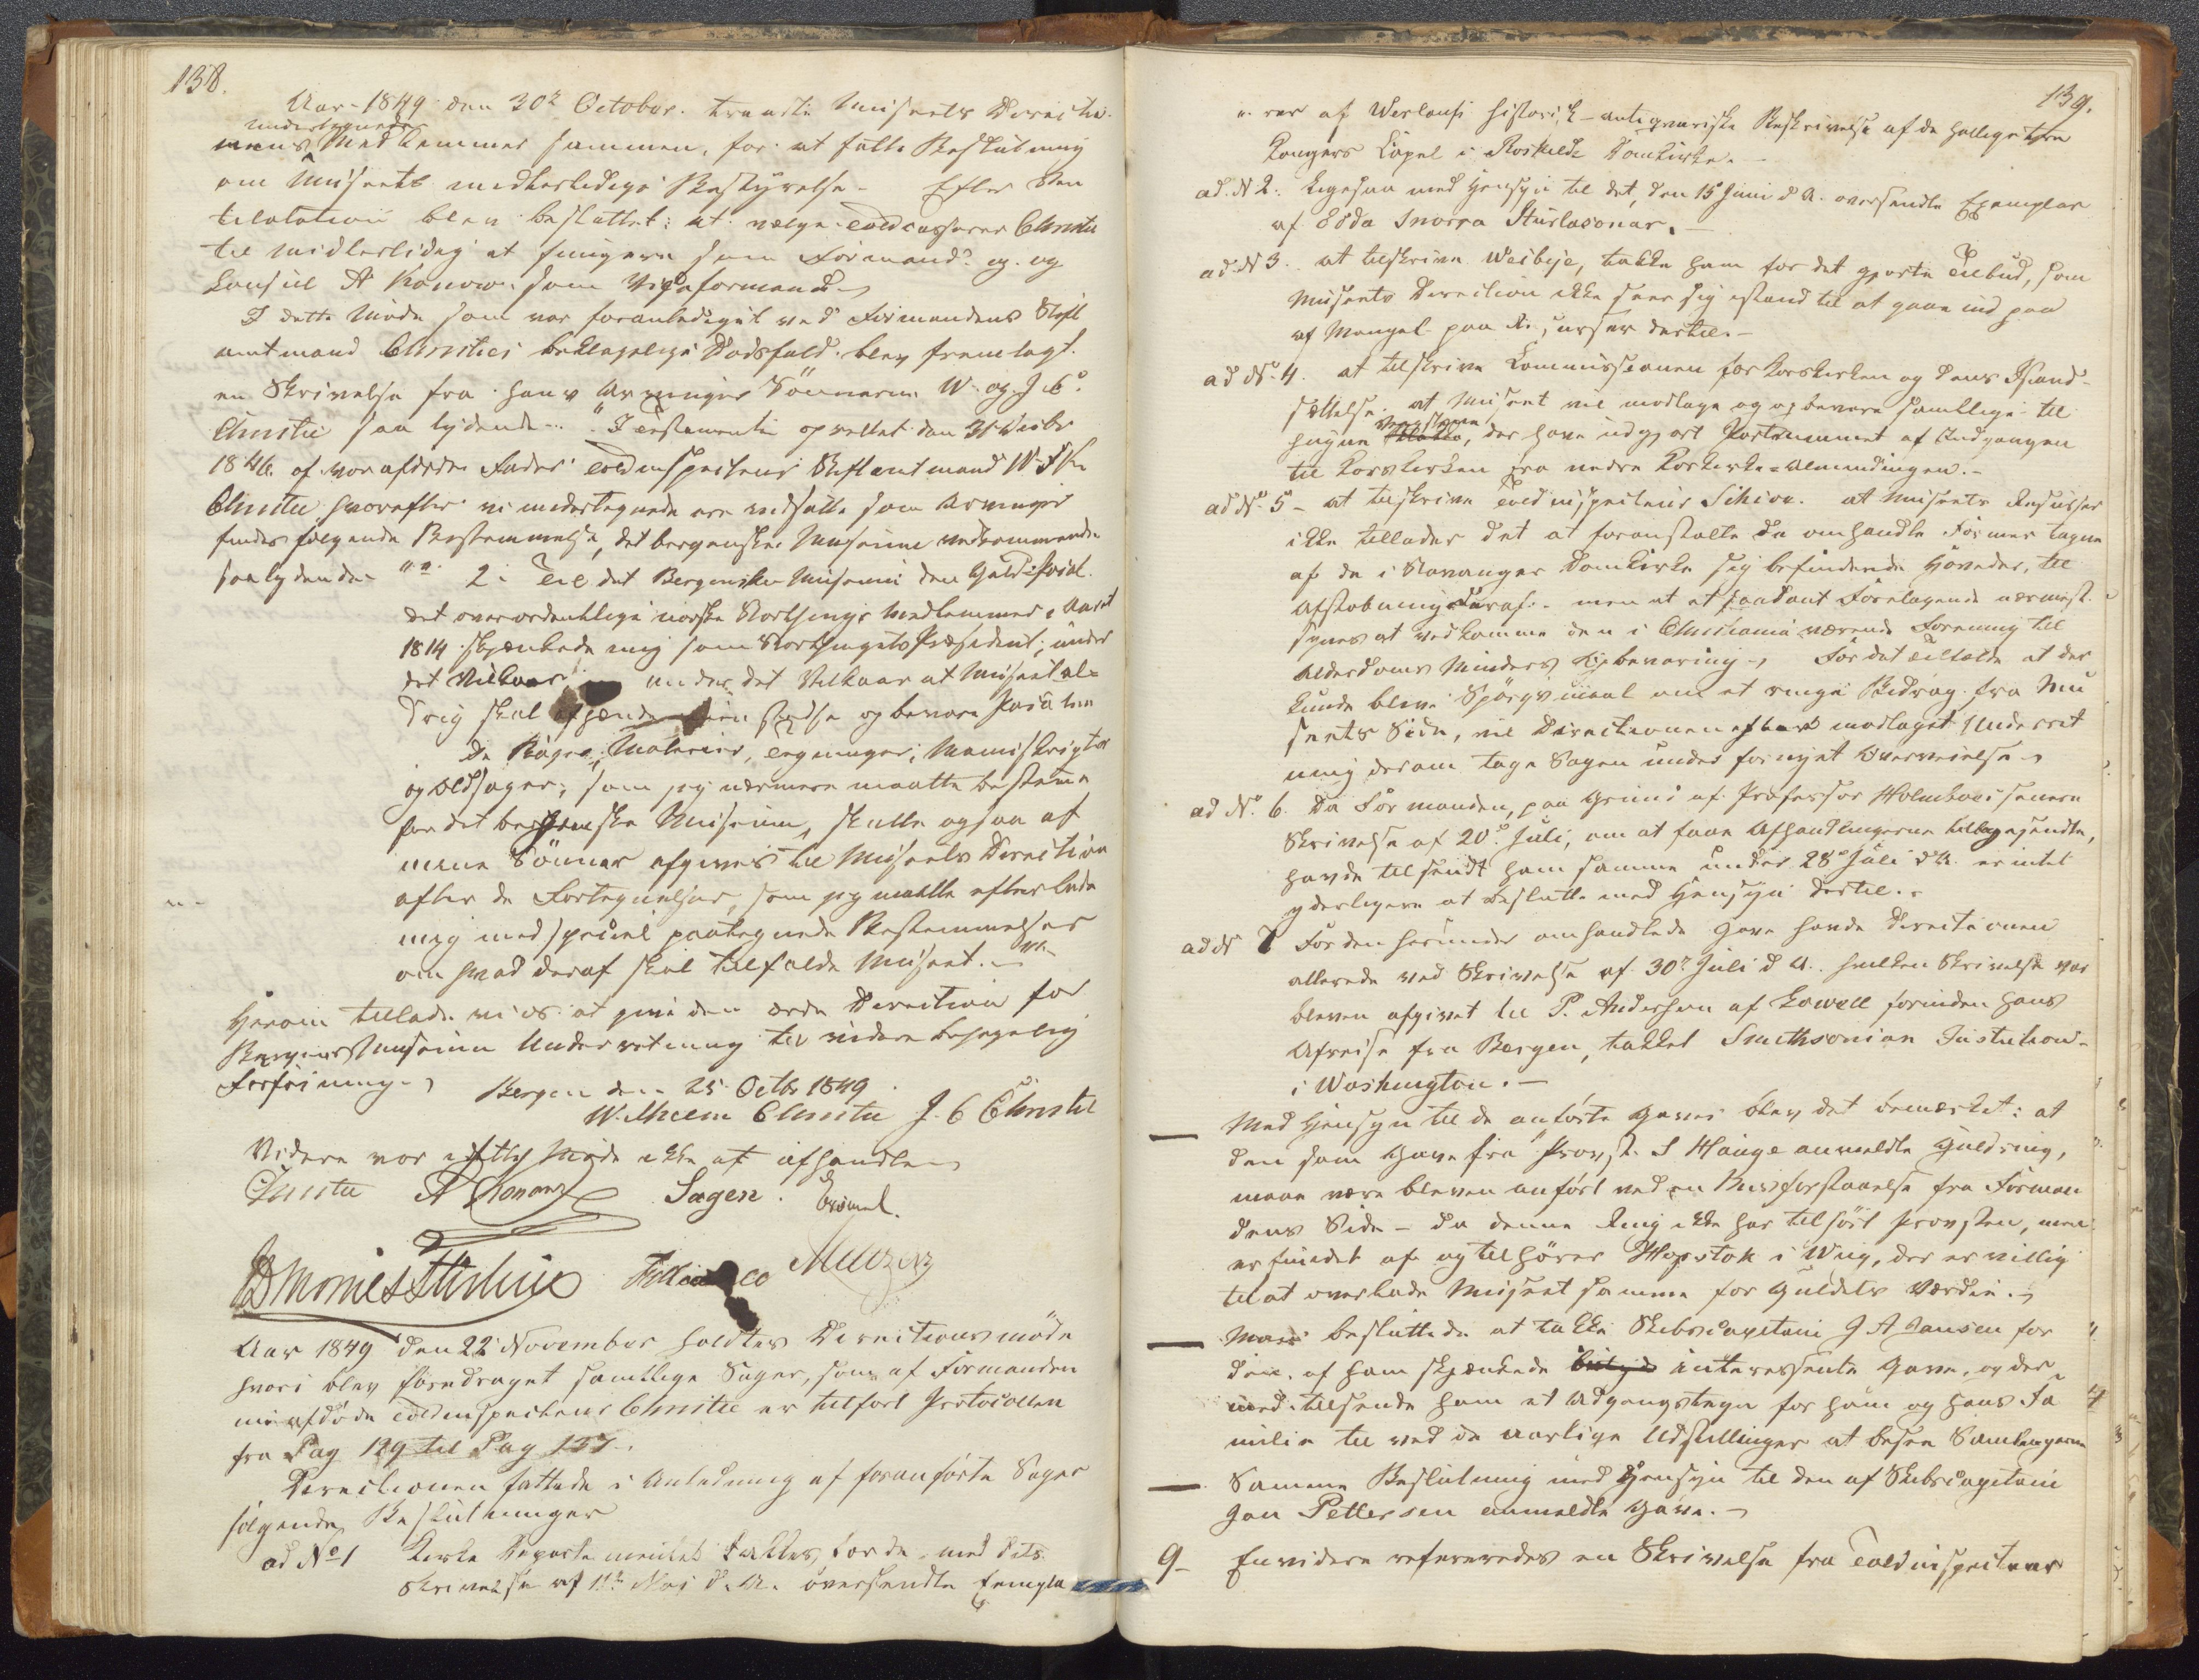 138.
Aar 1849 den 30te October traadte Museets Direction
undertegnede
Medlemmer sammen, for at fatte Beslutning
om Museets midlertidige Bestyrelse. Efter Ven
tilation blev besluttet: at vælge Toldcasserer Christie
til midlertidig at fungere som Formand og
Consul A Konow som Viceformand
I dette Møde som var foranlediget ved Formandens Stift
amtmand Christies beklagelige Dødsfald blev fremlagt
en Skrivelse fra hans Arvinger Sønnerne W. og J C
Christie saa lydende "I Testamente oprettet den 31
1846 af vor afdøde Fader Toldinspecteur Stiftamtmand W F K
Christie hvorefter vi undertegnede ere indsatte som Arvinger
findes følgende Bestemmelse, det bergenske Museum vedkommende
saalydende "" 2. Til det Bergenske Museum den Guld Pocal
det overordentlige norske Storthings Medlemmer i Aaret
1814 skjænkede mig som Storthingets Præsident; under
det Vilkaar under det Vilkaar at Museet al=
drig skal afhænde men stedse og bevare Pocalen
De Bøger, Malerier, Tegninger, Manuskripter
og Oldsager, som jeg nærmere maatte bestemme
for det bergenske Museum, skulle ogsaa af
mine Sønner afgives til Museets Direction
efter de Fortegnelser, som jeg maatte efterlade
mig med speciel paategnede Bestemmelser
om hvad deraf skal tilfalde Museet.
Herom tillade vi os at give den ærede Direction for
Bergens Museum Underretning til videre behagelig
Forføining.
Bergen den 25 Octbr 1849
Wilhelm Christie J. C Christie
Videre var i dette Møde ikke at afhandle
Christie A Konow Sagen.
Meltzer
Aar 1849 den 22 November holdtes Directionsmøde
hvori blev foredraget samtlige Sager, som af Formanden
nu afdøde Toldinspecteur Christie er tilført Protocollen
fra Pag 129 til Pag 137.
Directionen fattede i Anledning af foranførte Sager
følgende Beslutninger
ad No 1 Kirke Departementet takkes for de med dets
Skrivelse af 11te Mai d. A. oversendte Exempla
139.
rer af Werlaufs historisk-antiqvariske Beskrivelse af de hellige tre
Kongers Capel i Roskilde Domkirke.
ad. N 2. Ligesaa med Hensyn til det, den 15 Juni d A. oversendte Exemplar
af Edda Snorra Sturlasonar.
ad. N 3. at tilskrive Weibye, takke ham for det gjorte Tilbud, som
Museets Direction ikke seer sig istand til at gaae ind paa
af Mangel paa Resurser dertil.
ad No. 4. at tilskrive Commissionen for Korskirken og dens Istand-
sættelse at Museet vil modtage og opbevare samtlige til
hugne, der have udgjort Postamentet af Indgangen
til Korskirken fra nedre Korskirke=Almindingen.
ad No. 5 - at tilskrive Toldinspecteur Schiøtz at Museets Resurser
ikke tillader det at foranstalte de omhandlede Former tagne
af de i Stavanger Domkirke sig befindende Hoveder, til
Afstøbning deraf. men at et saadant Foretagende nærmest
synes at vedkomme den i Christiania værende Forening til
Oldtidsmindesmærkers Opbevaring. For det Tilfælde at der
kunde blive Spørgsmaal om et ringe Bidrag fra Mu
seets Side, vil Directionen efter modtaget Underret
ning derom tage Sagen under fornyet Overveielse.
ad No. 6. Da Formanden, paa Grund af Professor Holmboes senere
Skrivelse af 20de Juli, om at faae Afhandlingerne tilbagesendte,
havde tilsendt ham samme under 28de Juli d A. er intet
yderligere at beslutte med Hensyn dertil.
ad N 7 For den herunder omhandlede Gave havde Directionen
allerede ved Skrivelse af 30te Juli d A. hvilken Skrivelse var
bleven afgivet til P. Andersen af Lowell forinden hans
Afreise fra Bergen, takket Smithsonian Institution
i Washington.
Med Hensyn til de anførte Gaver blev det bemærket: at
den som Gave fra Provst S Hauge anmeldte Guldring,
maae være bleven anført ved en Misforstaaelse fra Forman
dens Side - da denne Ring ikke har tilhørt Provsten, men
er fundet af og tilhører Hopstok i Wiig, der er villig
til at overlade Museet samme for Guldets Værdie.
Man besluttede at takke Skibscapitain J A Jansen for
den af ham skjænkede interessante Gave, og der
med tilsende ham et Adgangstegn for ham og hans Fa
milie til ved de aarlige Udstillinger at besee Samlingerne
Samme Beslutning med Hensyn til den af Skibscapitain
Jan Pettersen anmeldte Gave.
9- Envidere refereredes en Skrivelse fra Toldinspecteur